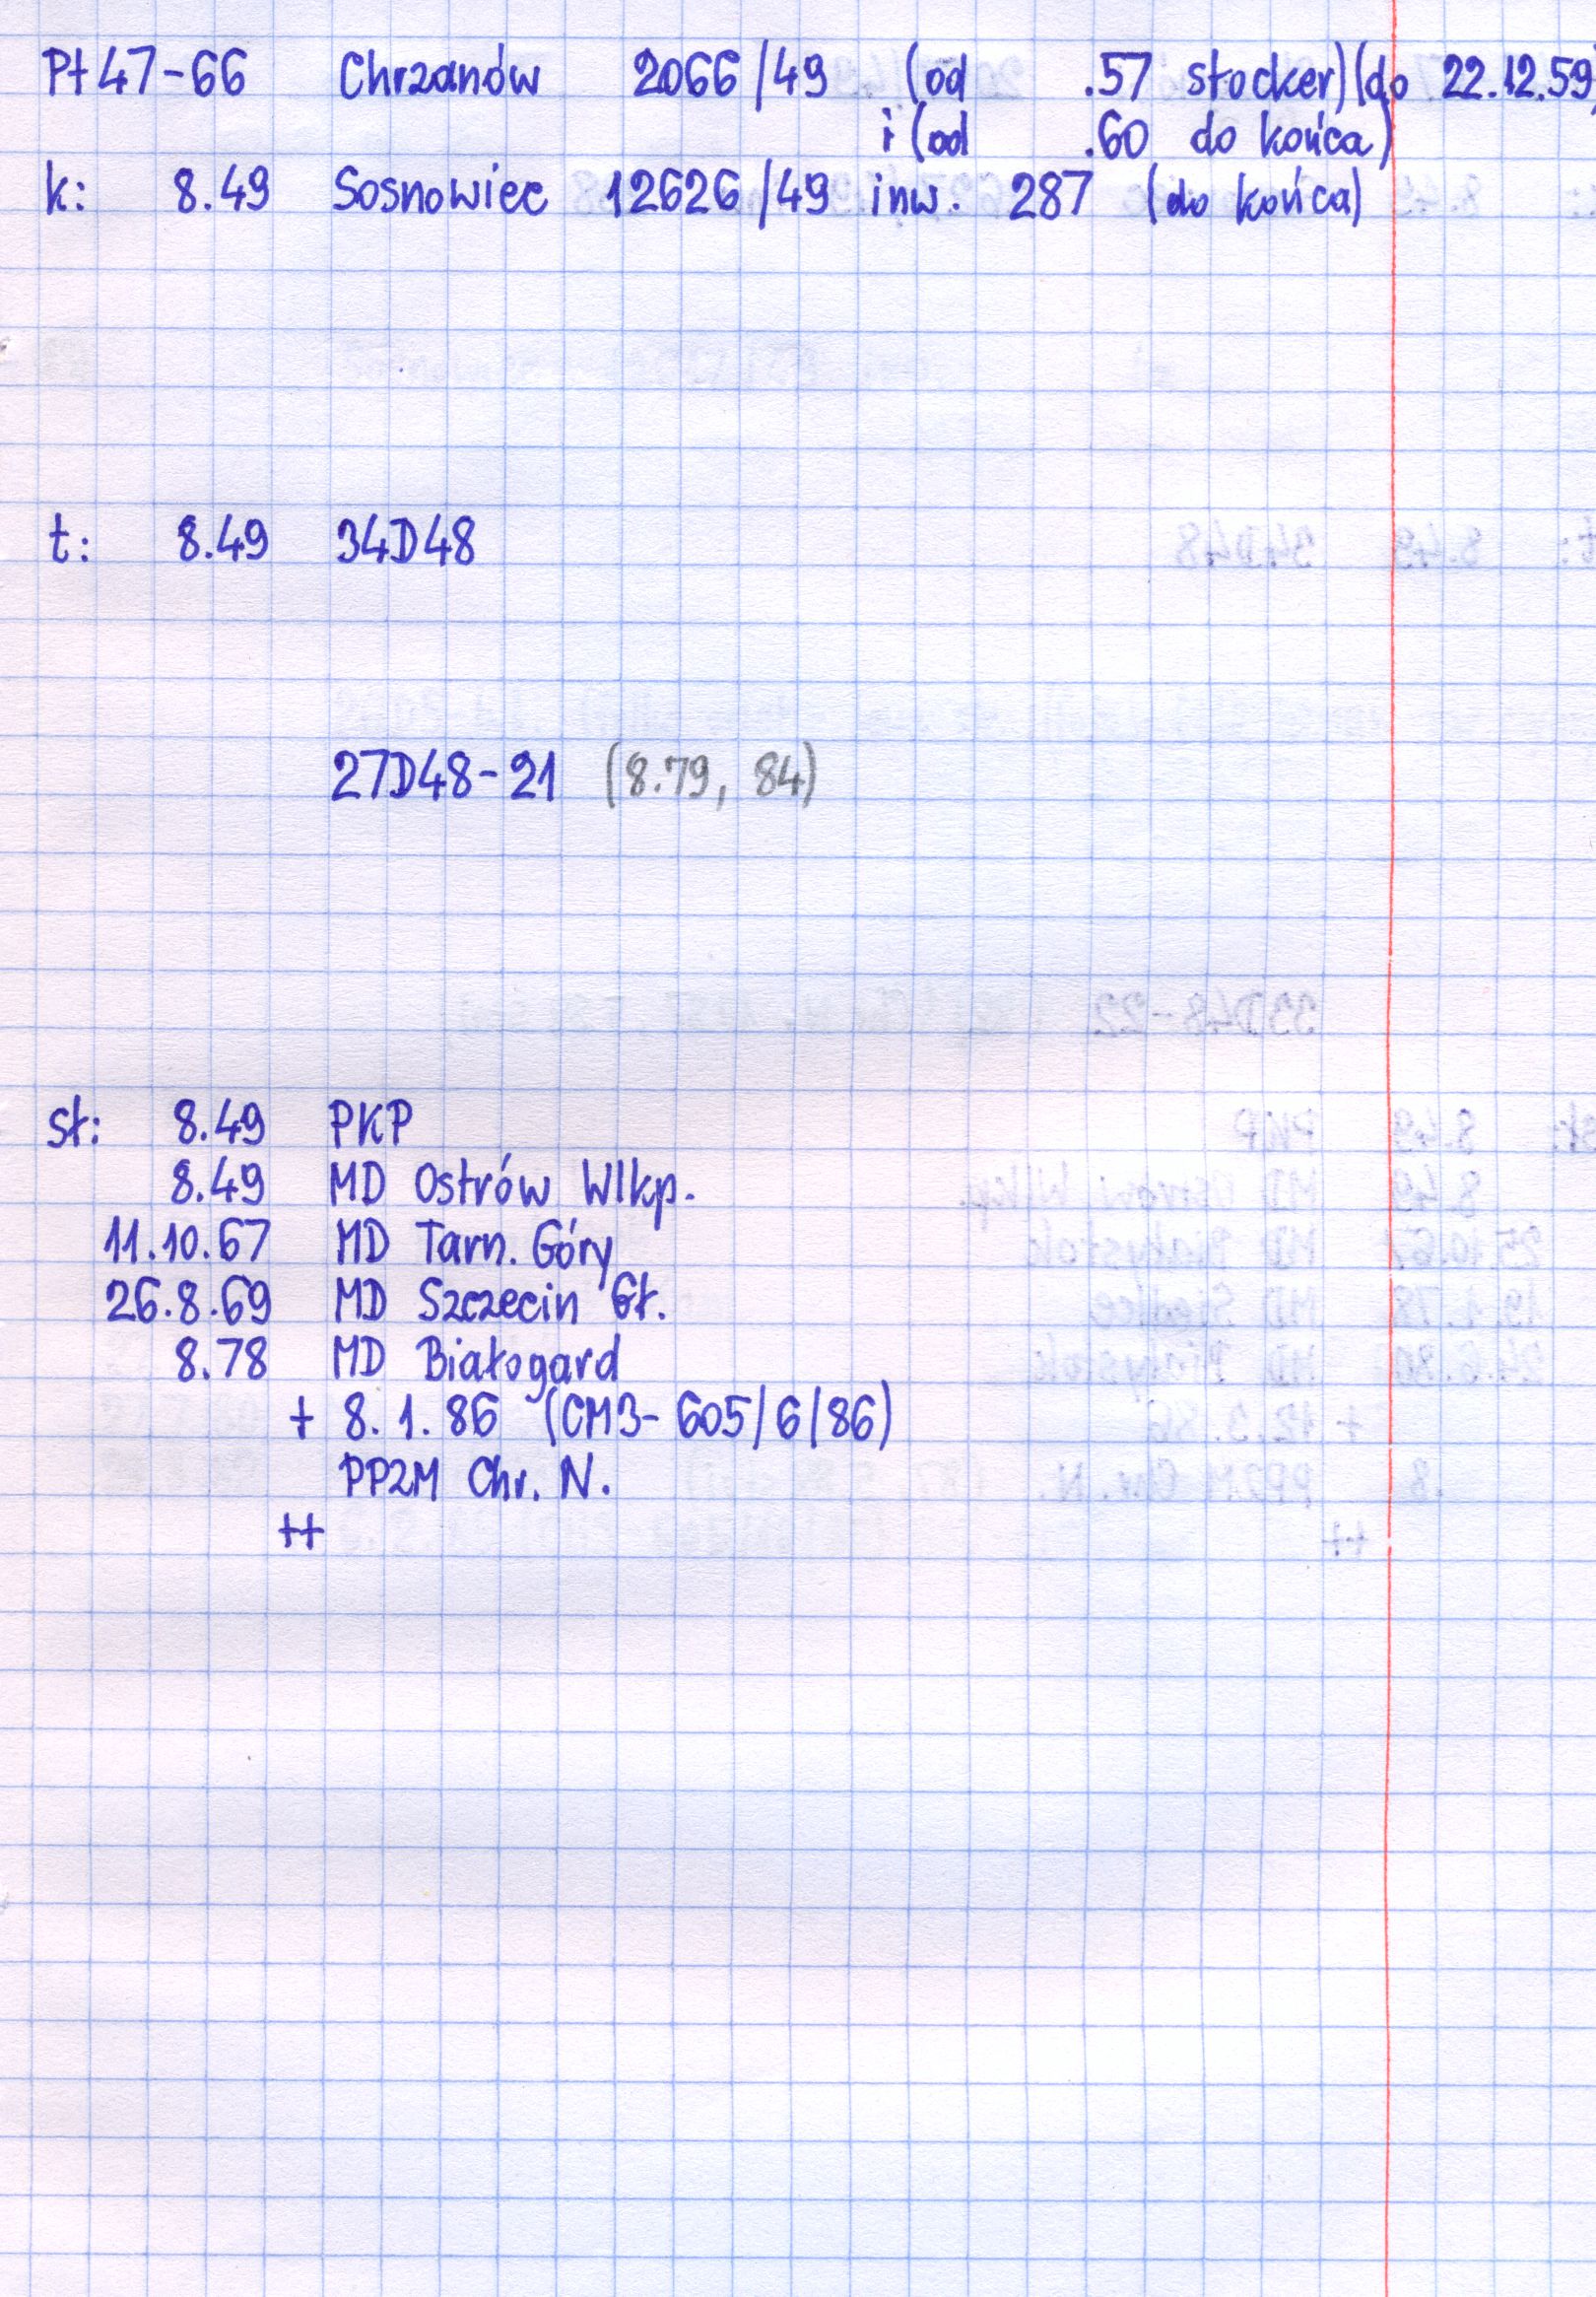 Pt47-66 Chrzanów 2066/49 (od .57 stocker)(do 22.12.59)
i (od .60 do końca)
k: 8.49 Sosnowiec 12626/49 inw. 287 (do końca)
t: 8.49 34D48
27D48-21 (8.79, 84)
st: 8.49 PKP
8.49 MD Ostrów Wlkp.
11.10.67 MD Tarn. Góry
26.8.69 MD Szczecin Gł.
8.78 MD Białogard
+ 8.1.86 (CM3-605/6/86)
PP2M Chr. N.
++